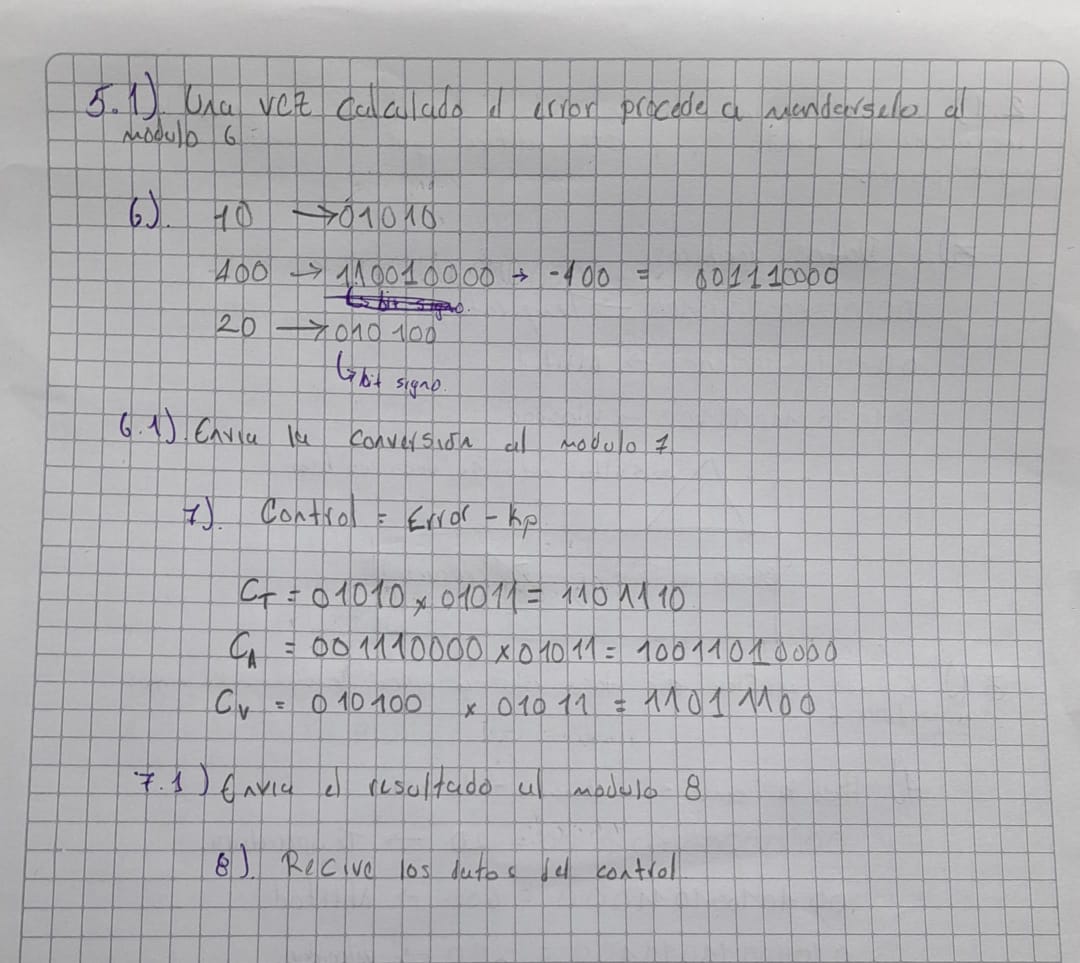 5.1). Una vez calculado el error procede a mandarselo al
modulo 6
6). 10 → 01010
400 → 110010000 → -400 = 001110000
↳ bit signo.
20 → 010100
↳ bit signo.
6.1). Envia la conversión al modulo 7
7). Control = Error - Kp
CT = 01010 x 01011 = 1101110
CA = 001110000 x 01011 = 10011010000
CV = 010100 x 01011 = 11011100
7.1) Envia el resultado al modulo 8
8). Recive los datos del control.